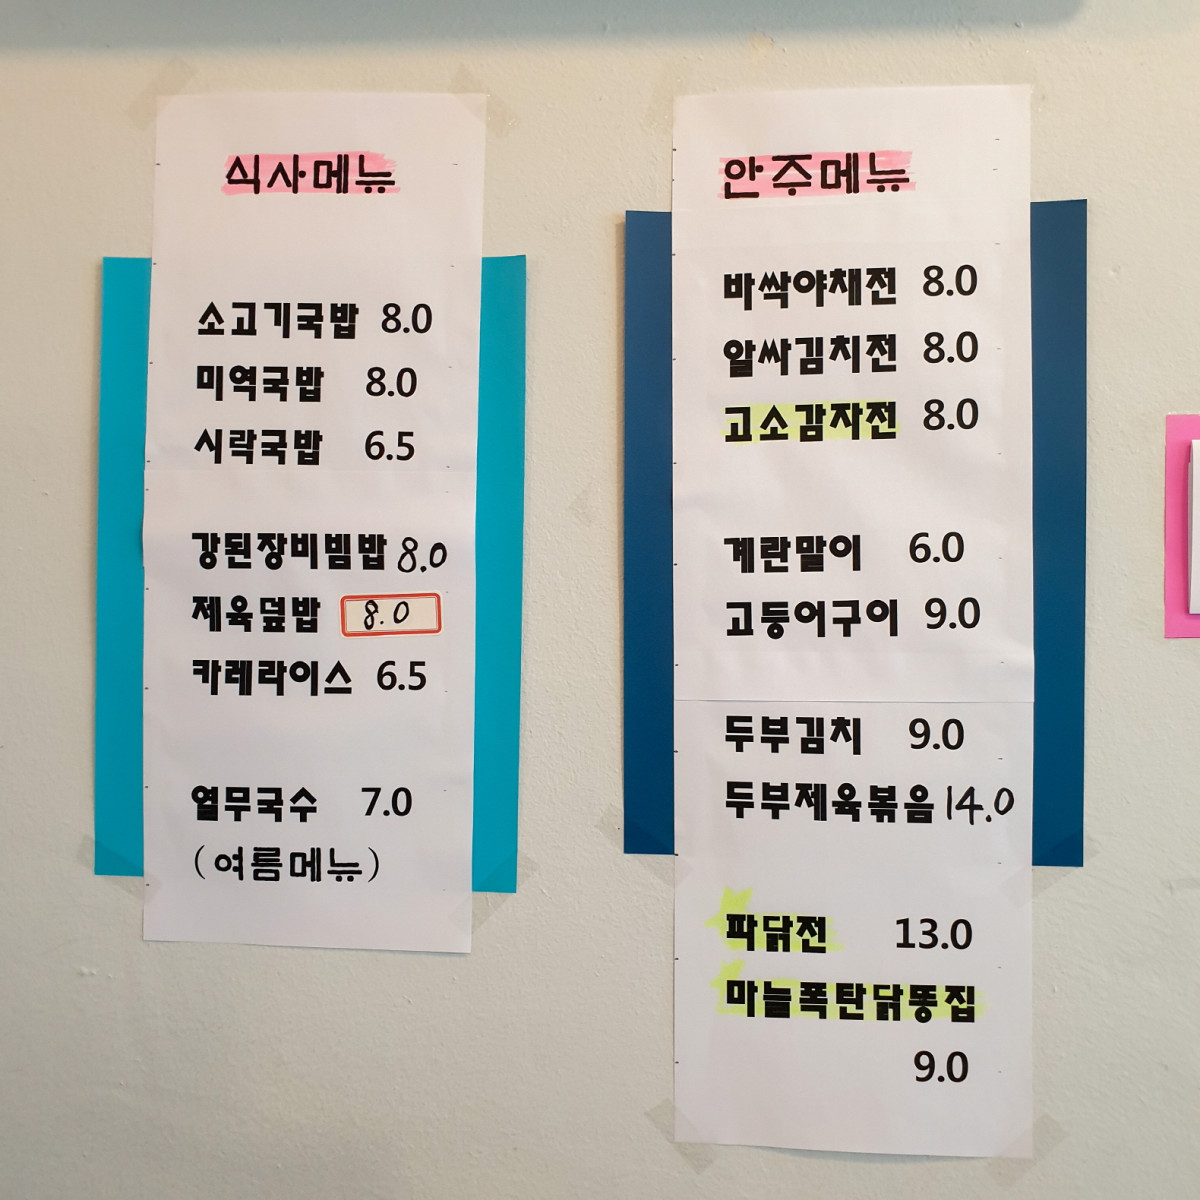 식사메뉴
소고기국밥 8.0
미역국밥 8.0
시락국밥 6.5
강된장비빔밥 8.0
제육덮밥 8.0
카레라이스 6.5
열무국수 7.0
(여름메뉴)
안주메뉴
바싹야채전 8.0
알싸김치전 8.0
고소감자전 8.0
계란말이 6.0
고등어구이 9.0
두부김치 9.0
두부제육볶음 14.0
파닭전 13.0
마늘폭탄닭똥집
9.0